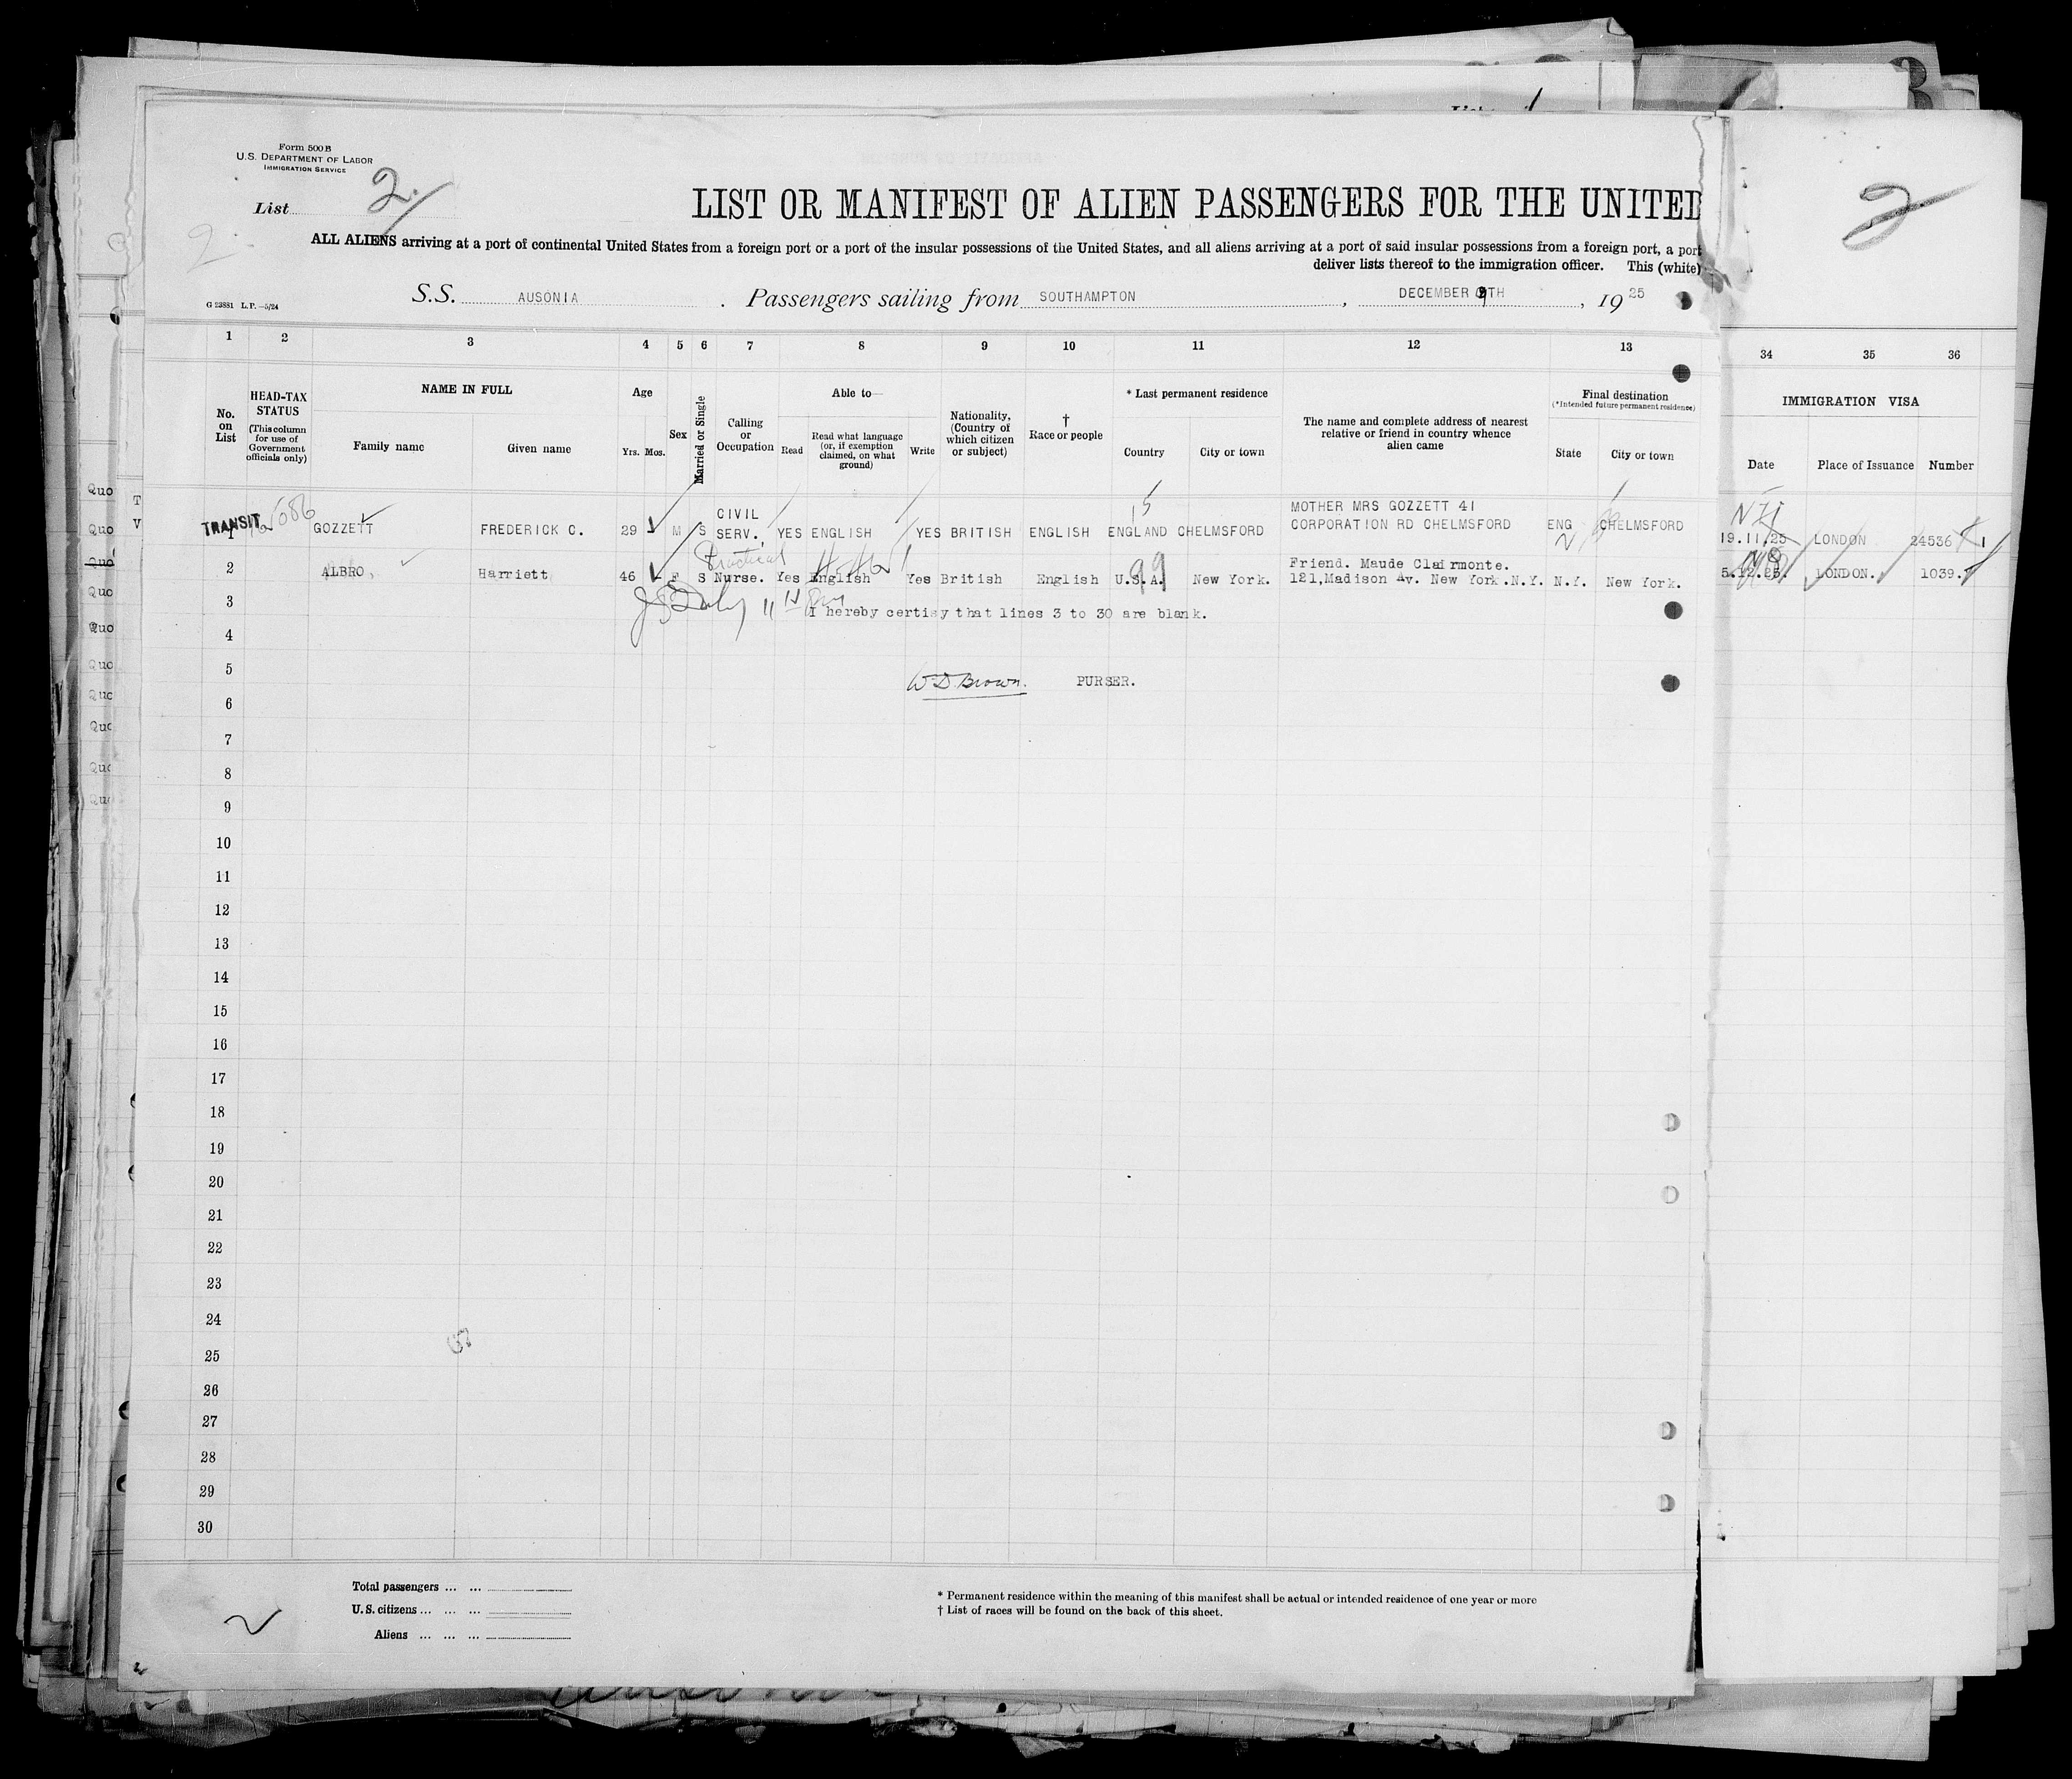 Form 500B
U.S. DEPARTMENT OF LABOR
IMMIGRATION SERVICE
List 2
2
2
LIST OR MANIFEST OF ALIEN PASSENGERS FOR THE UNITED
ALL ALIENS arriving at a port of continental United States from a foreign port or a port of the insular possessions of the United States, and all aliens arriving at a port of said insular possessions from a foreign port, a port
deliver lists thereof to the immigration officer. This (white)
S.S. AUSONIA . Passengers sailing from SOUTHAMPTON , DECEMBER 9TH , 1925
G 23881 L.P.—5/24
1 2 3 4 5 6 7 8 9 10 11 12 13 34 35 36
No. on List
HEAD-TAX STATUS (This column for use of Government officials only)
NAME IN FULL
Family name Given name
Age
Yrs. Mos.
Sex
Married or Single
Calling or Occupation
Able to—
Read
Read what language (or, if exemption claimed, on what ground)
Write
Nationality, (Country of which citizen or subject)
† Race or people
* Last permanent residence
Country City or town
The name and complete address of nearest relative or friend in country whence alien came
Final destination
(*Intended future permanent residence)
State City or town
IMMIGRATION VISA
Date Place of Issuance Number
TRANSIT
1 GOZZETT FREDERICK C. 29 M S CIVIL SERV. YES ENGLISH YES BRITISH ENGLISH ENGLAND CHELMSFORD MOTHER MRS GOZZETT 41 CORPORATION RD CHELMSFORD ENG CHELMSFORD 19.11.25 LONDON 24536
Practical
2 ALBRO, Harriett 46 F S Nurse. Yes English Yes British English U.S.A. New York. Friend. Maude Clairmonte. 121,Madison Av. New York.N.Y. N.Y. New York. 5.12.25. LONDON. 1039.
99
3
I hereby certisy that lines 3 to 30 are blank.
4
5
W D Brown. PURSER.
6
7
8
9
10
11
12
13
14
15
16
17
18
19
20
21
22
23
24
25
26
27
28
29
30
Total passengers ... ...
U.S. citizens ... ... ...
Aliens ... ... ...
* Permanent residence within the meaning of this manifest shall be actual or intended residence of one year or more
† List of races will be found on the back of this sheet.